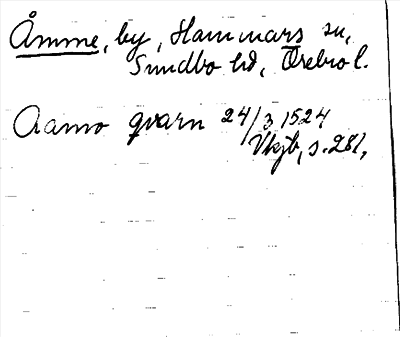 Åmme, by, Hammars sn,
Sundbo hd, Örebro l.
Aamo qvarn 24/3 1524
Vkjb, s. 281,